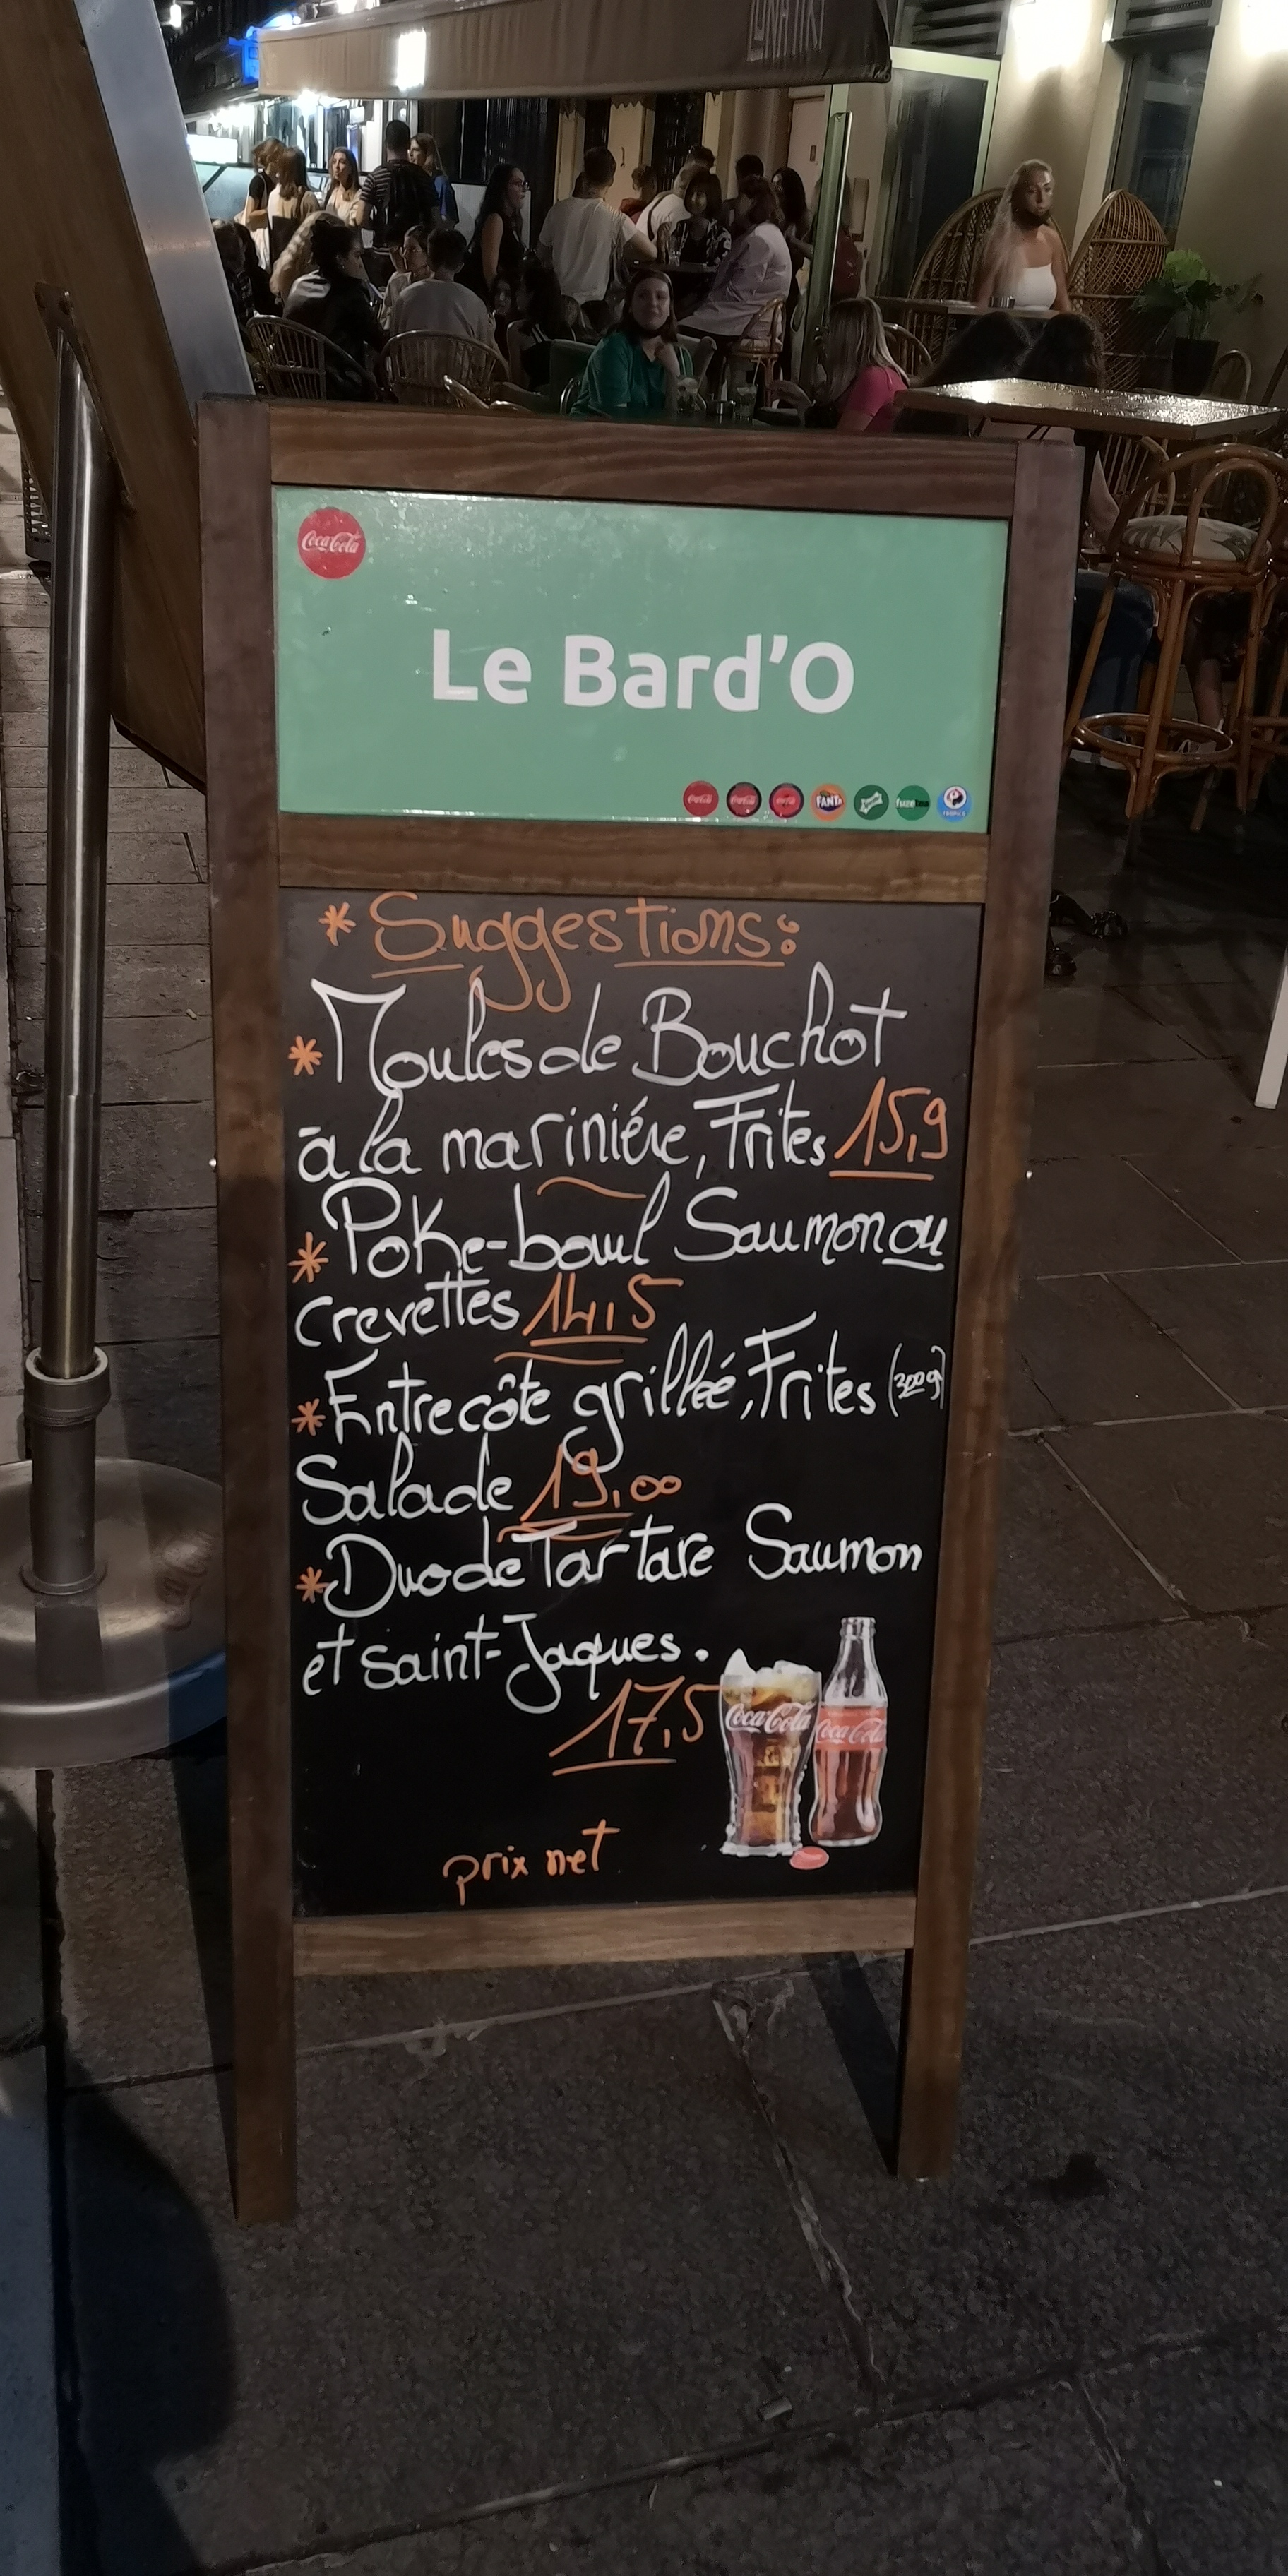 Coca-Cola
Le Bard'O
Coca-Cola Coca-Cola Coca-Cola FANTA fuzetea
* Suggestions:
* Moules de Bouchot
à la mariniére, Frites 15,9
* Poke-bowl Saumon ou
crevettes 14,5
* Entrecôte grillée, Frites (300g)
Salade 19,00
* Duo de Tartare Saumon
et saint-Jaques.
17,5
Coca-Cola Coca-Cola
prix net